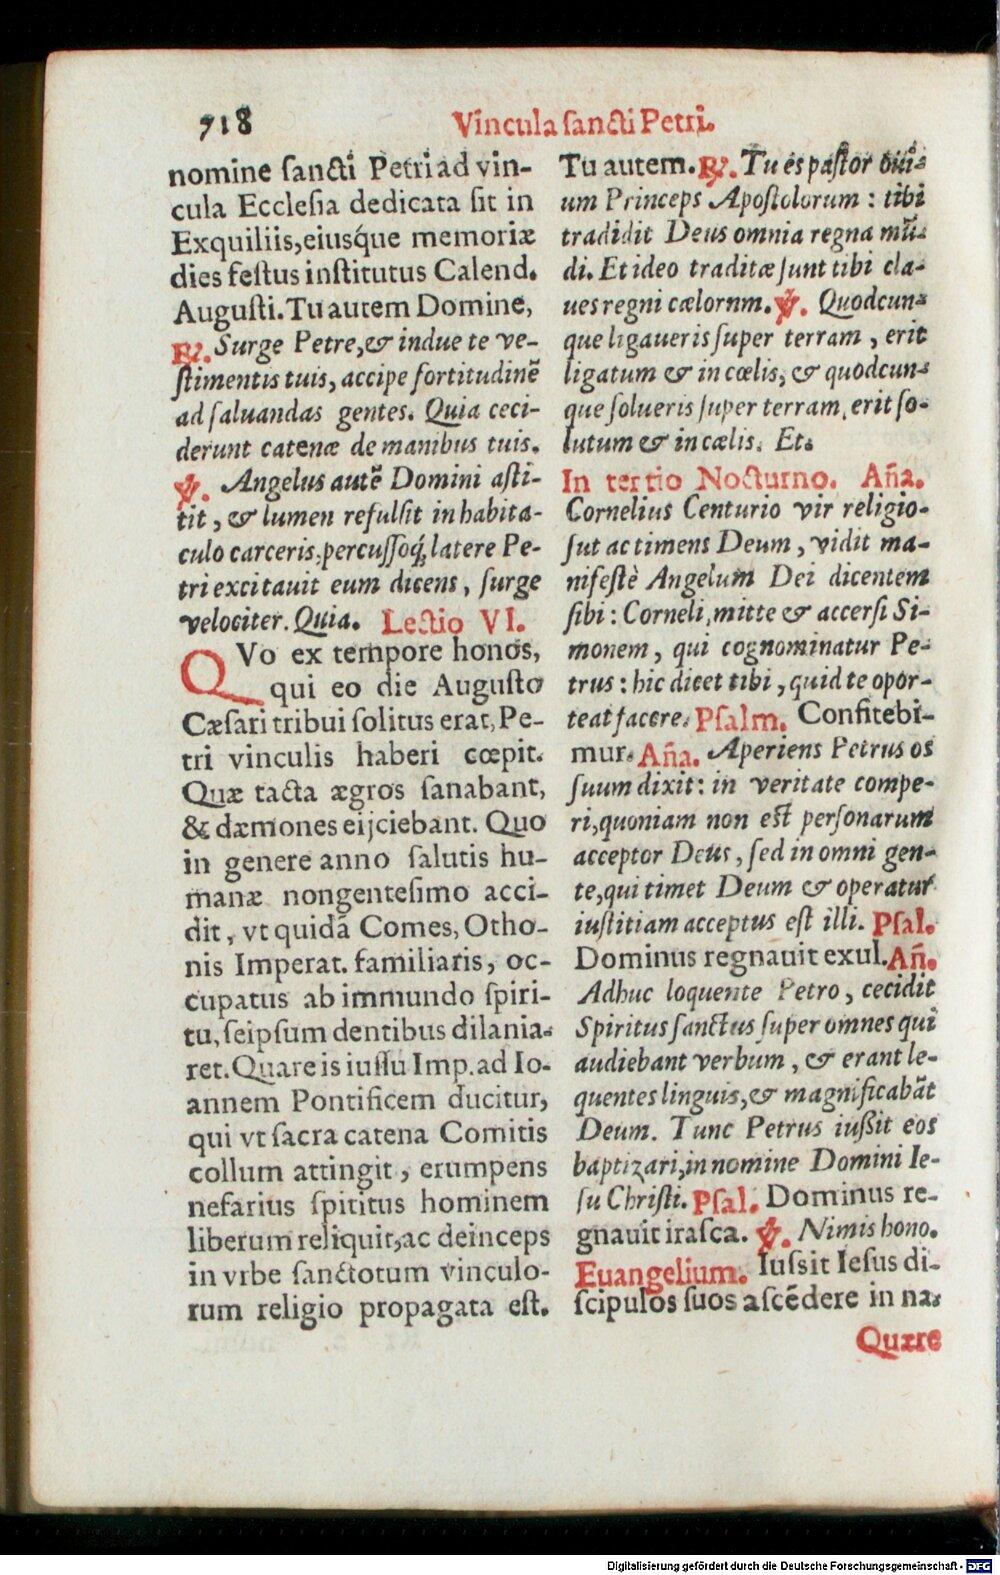 718
Vincula sancti Petri.
nomine sancti Petri ad vin-
cula Ecclesia dedicata sit in
Exquiliis, eiusq́ue memoriæ
dies festus institutus Calend.
Augusti. Tu autem Domine,
℟. Surge Petre, & indue te ve-
stimentis tuis, accipe fortitudinẽ
ad saluandas gentes. Quia ceci-
derunt catenæ de manibus tuis.
℣. Angelus autẽ Domini asti-
tit, & lumen refulsit in habita-
culo carceris, percussoq́; latere Pe-
tri excitauit eum dicens, surge
velociter. Quia. Lectio VI.
QVo ex tempore honos,
qui eo die Augusto
Cæsari tribui solitus erat, Pe-
tri vinculis haberi cœpit.
Quæ tacta ægros sanabant,
& dæmones eijciebant. Quo
in genere anno salutis hu-
manæ nongentesimo acci-
dit, vt quidã Comes, Otho-
nis Imperat. familiaris, oc-
cupatus ab immundo spiri-
tu, seipsum dentibus dilania-
ret. Quare is iussu Imp. ad Io-
annem Pontificem ducitur,
qui vt sacra catena Comitis
collum attingit, erumpens
nefarius spititus hominem
liberum reliquit, ac deinceps
in vrbe sanctotum vinculo-
rum religio propagata est.
Tu autem. ℟. Tu es pastor oui-
um Princeps Apostolorum : tibi
tradidit Deus omnia regna mũ-
di. Et ideo traditæ sunt tibi cla-
ues regni cælornm. ℣. Quodcun-
que ligaueris super terram, erit
ligatum & in cœlis, & quodcun-
que solueris super terram, erit so-
lutum & in cælis. Et.
In tertio Nocturno. Añа.
Cornelius Centurio vir religio-
sut ac timens Deum, vidit ma-
nifestè Angelum Dei dicentem
sibi : Corneli, mitte & accersi Si-
monem, qui cognominatur Pe-
trus : hic dicet tibi, quid te opor-
teat facere. Psalm. Confitebi-
mur. Aña. Aperiens Petrus os
suum dixit : in veritate compe-
ri, quoniam non est personarum
acceptor Deus, sed in omni gen-
te, qui timet Deum & operatur
iustitiam acceptus est illi. Psal.
Dominus regnauit exul. Añ.
Adhuc loquente Petro, cecidit
Spiritus sanctus super omnes qui
audiebant verbum, & erant le-
quentes linguis, & magnificabãt
Deum. Tunc Petrus iußit eos
baptizari, in nomine Domini Ie-
su Christi. Psal. Dominus re-
gnauit irasca. ℣. Nimis hono.
Euangelium. Iussit Iesus di-
scipulos suos ascẽdere in na-
Quære
Digitalisierung gefördert durch die Deutsche Forschungsgemeinschaft - DFG